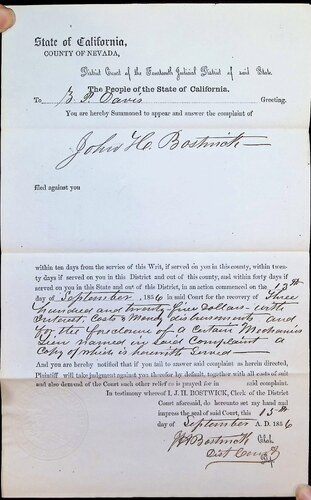 State of California,
COUNTY OF NEVADA,
District Court of the Fourteenth Judicial District of said State.
The People of the State of California.
To Z. P. Davis Greeting.
You are hereby Summoned to appear and answer the complaint of
John H. Bostwick
filed against you
within ten days from the service of this Writ, if served on you in this county, within twen-
ty days if served on you in this District and out of this county, and within forty days if
served on you in this State and out of this District, in an action commenced on the 13th
day of September, 1856 in said Court for the recovery of Three
hundred and twenty five Dollars with
Interest. Costs & Money disbursements and
for the foreclosure of a Certain Mechanics
Lien named in said Complaint a
Copy of which is herewith Served
And you are hereby notified that if you fail to answer said complaint as herein directed,
Plaintiff will take judgment against you therefor by default, together with all costs of suit
and also demand of the Court such other relief as is prayed for in said complaint.
In testimony whereof I, J. H. BOSTWICK, Clerk of the District
Court aforesaid, do hereunto set my hand and
impress the seal of said Court, this 15th
day of September A. D. 1856
J H Bostwick Clerk,
Dist Court